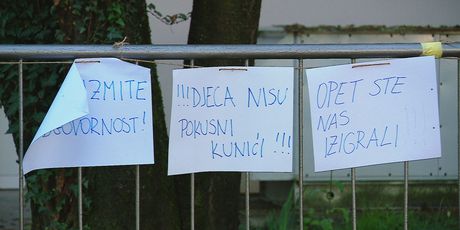 ZMITE
DGOVORNOST!
!!!DJECA NISU
POKUSNI
KUNIĆI !!!
OPET STE
NAS
IZIGRALI !!!